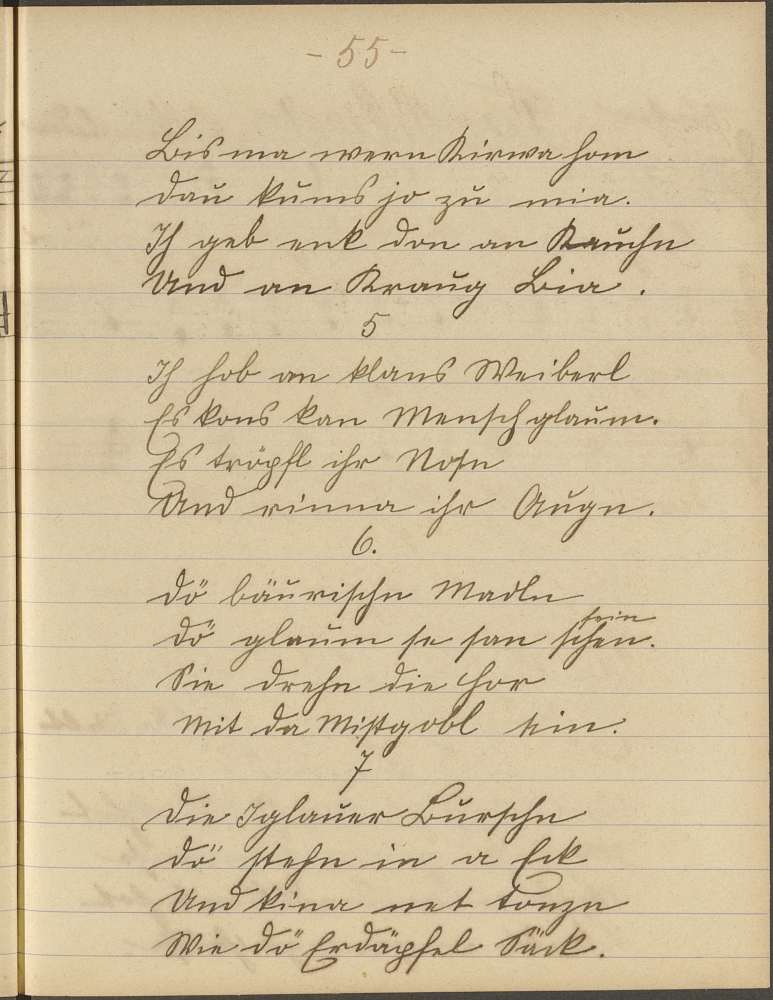 - 55 -
Bis ma wern Kirwa hom
dau kums jo zu mia.
Ich geb enk don an Kauchn
Und an Kraug Bia.
5
Ich hob an klans Weiberl
Es kons kan Mensch glaum.
Es tröpfl ihr Nosn
Und rinna ihr Augn.
6.
Dö bäurischn Madln
Dö glaum se san schen.
fein
Sie drehn die Hor
Mit da Mistgobl ein.
7
Die Iglauer Burschn
Dö stehn in a Eck
Und kina net tonzn
Wie dö Erdäpfel Säck.